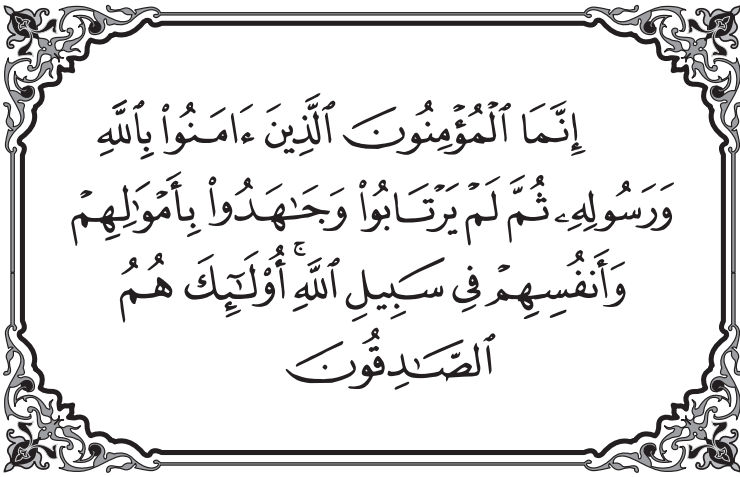 إِنَّمَا ٱلْمُؤْمِنُونَ ٱلَّذِينَ ءَامَنُوا۟ بِٱللَّهِ
وَرَسُولِهِۦ ثُمَّ لَمْ يَرْتَابُوا۟ وَجَـٰهَدُوا۟ بِأَمْوَٰلِهِمْ
وَأَنفُسِهِمْ فِى سَبِيلِ ٱللَّهِ ۚ أُو۟لَـٰٓئِكَ هُمُ
ٱلصَّـٰدِقُونَ